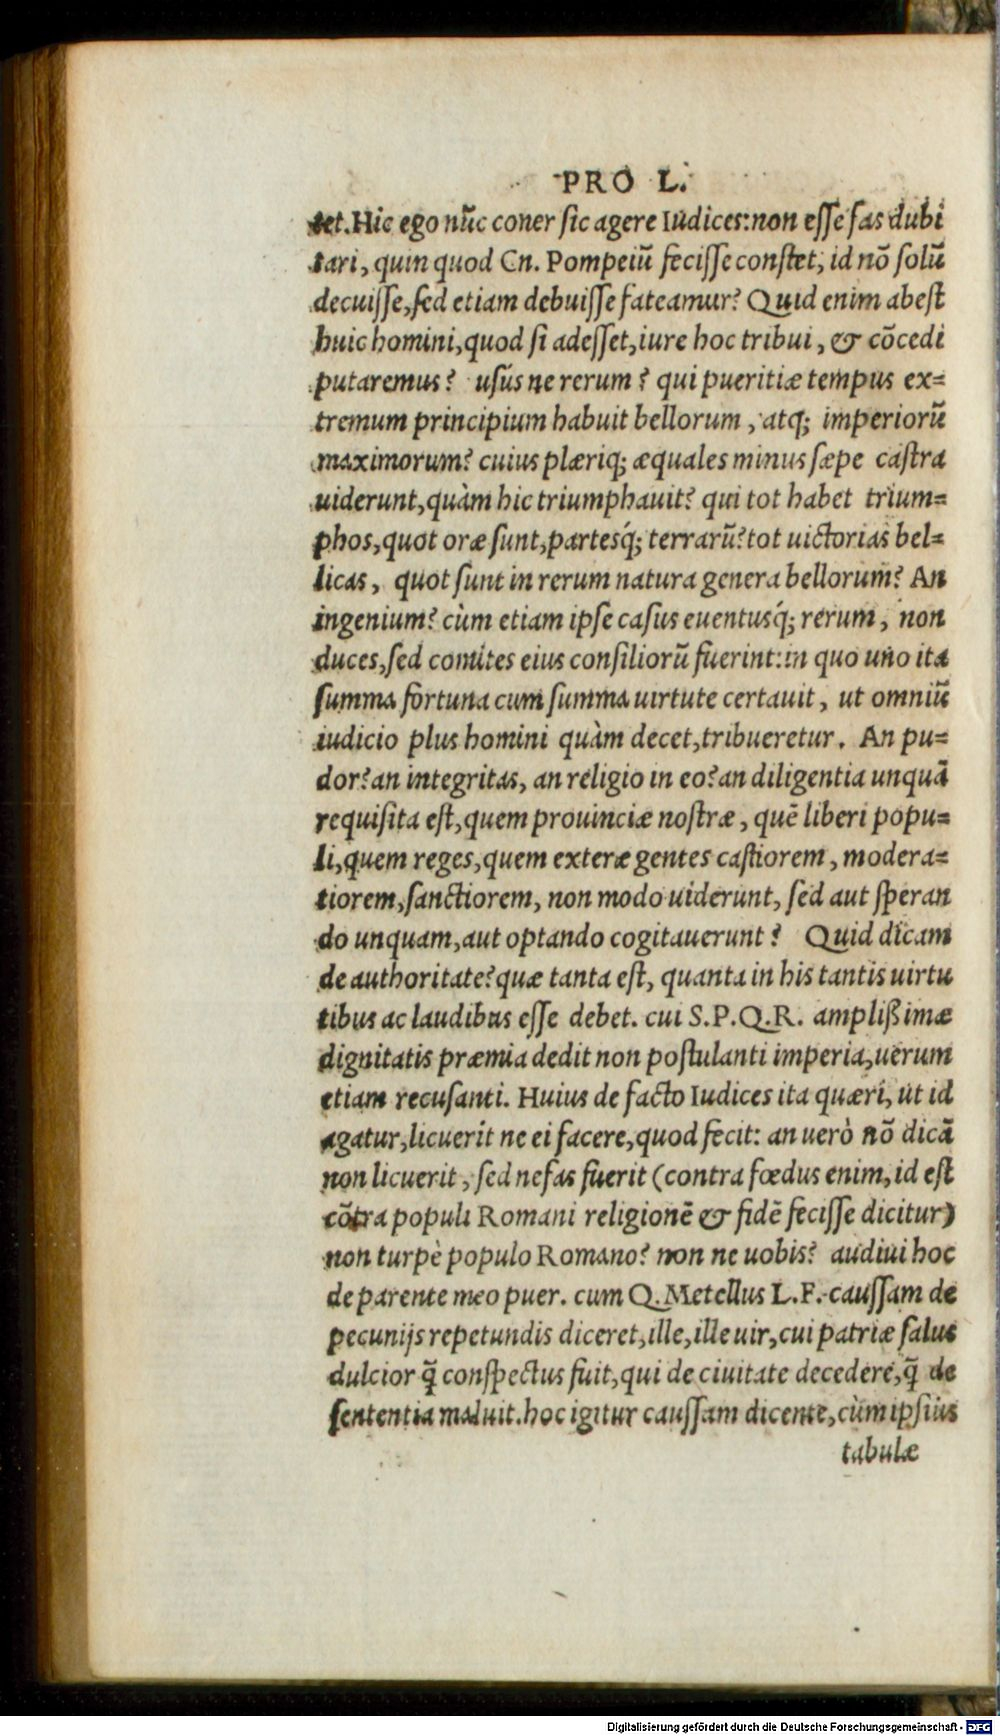 PRO L.
tet. Hic ego nūc coner sic agere Iudices: non esse fas dubi
tari, quin quod Cn. Pompeiū fecisse constet, id nō solū
decuisse, sed etiam debuisse fateamur? Quid enim abest
huic homini, quod si adesset, iure hoc tribui, & cōcedi
putaremus? usús ne rerum? qui pueritiæ tempus ex=
tremum principium habuit bellorum, atq; imperiorū
maximorum? cuius plæriq; æquales minus sæpe castra
uiderunt, quàm hic triumphauit? qui tot habet trium=
phos, quot oræ sunt, partesq́; terrarū? tot uictorias bel=
licas, quot sunt in rerum natura genera bellorum? An
ingenium? cùm etiam ipse casus euentusq́; rerum, non
duces, sed comites eius consiliorū fuerint: in quo uno ita
summa fortuna cum summa uirtute certauit, ut omniū
iudicio plus homini quàm decet, tribueretur. An pu=
dor? an integritas, an religio in eo? an diligentia unquā
requisita est, quem prouinciæ nostræ, quē liberi popu=
li, quem reges, quem exteræ gentes castiorem, modera=
tiorem, sanctiorem, non modo uiderunt, sed aut speran
do unquam, aut optando cogitauerunt? Quid dicam
de authoritate? quæ tanta est, quanta in his tantis uirtu
tibus ac laudibus esse debet. cui S.P.Q.R. amplißimæ
dignitatis præmia dedit non postulanti imperia, uerum
etiam recusanti. Huius de facto Iudices ita quæri, ut id
agatur, licuerit ne ei facere, quod fecit: an uerò nō dicā
non licuerit, sed nefas fuerit (contra fœdus enim, id est
cōtra populi Romani religionē & fidē fecisse dicitur)
non turpè populo Romano? non ne uobis? audiui hoc
de parente meo puer. cum Q. Metellus L. F. caussam de
pecunijs repetundis diceret, ille, ille uir, cui patriæ salus
dulcior q̄ conspectus fuit, qui de ciuitate decedere, q̄ de
sententia maluit. hoc igitur caussam dicente, cùm ipsius
tabulæ
Digitalisierung gefördert durch die Deutsche Forschungsgemeinschaft - DFG